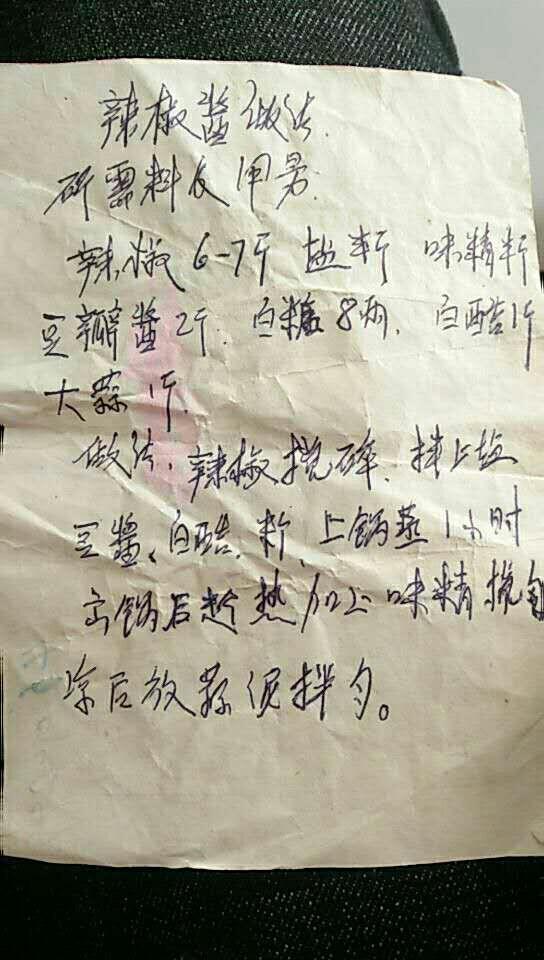 辣椒醬做法.
所需料及用量
辣椒6-7斤 盐半斤 味精半斤
豆瓣醬2斤. 白糖8两. 白醋1斤
大蒜1斤.
做法. 辣椒搅碎. 拌上盐
豆醬、白醋. 上锅蒸1小时
出锅后趁热加上味精搅匀
凉后放蒜泥拌匀。